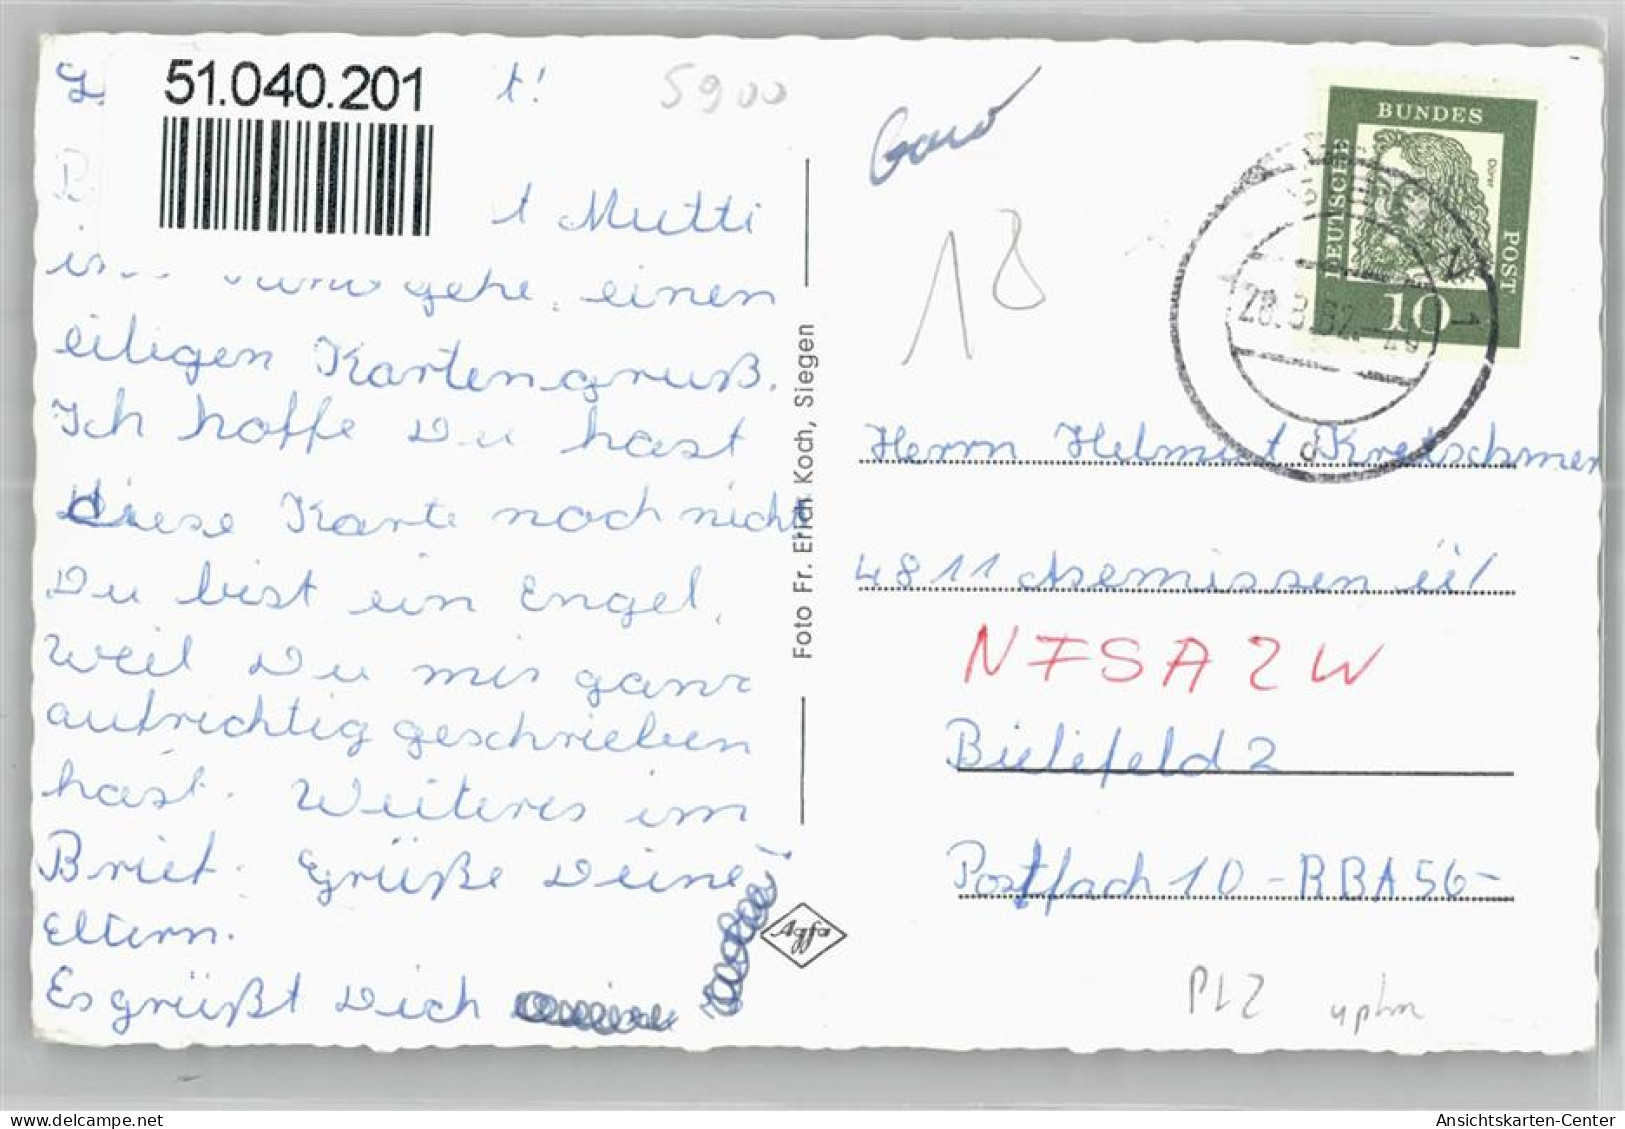 51.040.201
t! 5900
t Mutti
gehe, einen
eiligen Kartengruß.
Ich hoffe Du hast
diese Karte noch nicht
Du bist ein Engel,
Weil Du mir ganz
aufrichtig geschrieben
hast. Weiteres im
Brief. Grüße Deine
Eltern.
Es grüßt Dich
Foto Fr. Erich Koch, Siegen
Agfa
18
DEUTSCHE
BUNDES
POST
Dürer
10
SIEGEN
1
d
Herrn Helmut Kretschmer
4811 Asemissen ü/
N7SA2W
Bielefeld 2
Postfach 10 - RBA56-
PLZ
Ansichtskarten-Center